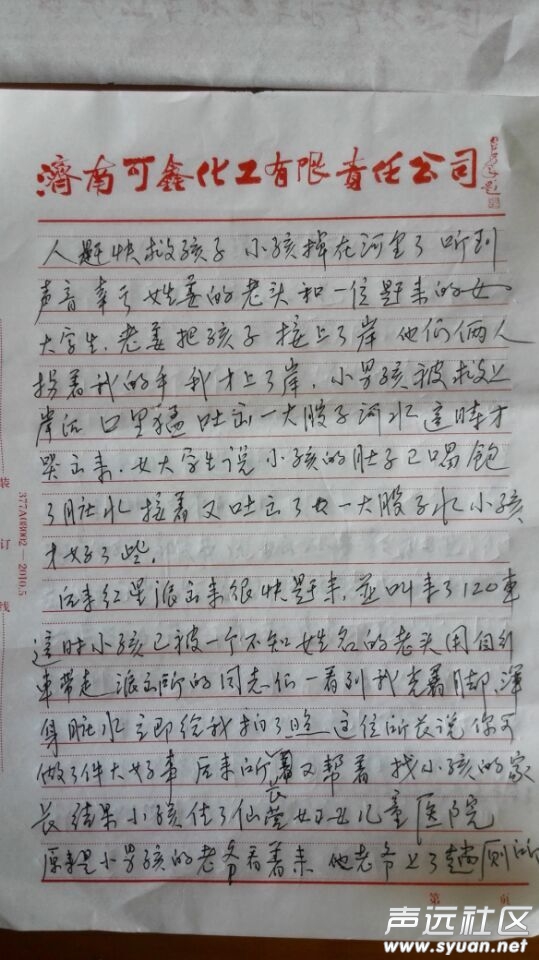 濟南可鑫化工有限責任公司
人题快救孩子 小孩掉在河里了 听到
声音 幸亏姓姜的老头和一位赶来的女
大学生，老姜把孩子接上了岸 他们俩人
拐着我的手我才上了岸，小男孩被救上
岸后 口里猛吐出一大股子河水 这时才
哭出来，女大学生说小孩的肚子已喝饱
了脏水 接着又吐出了又一大股子水 小孩
才好了些，
后来红星派出来很快赶来，并叫来了120車
这时小孩已被一个不知姓名的老头用自行
車带走 派出所的同志们一看到我光着脚 浑
身脏水 立即给我拍了照 这位所长说 你可
做了件大好事 后来所長又帮着 找小孩的家
长 结果小孩住了仙营妇女儿童医院
原来是小男孩的老爷看着来 他老爷上了趟厕所
装
订
线
377A(6)002—2010.5
第 页
声远社区
www.syuan.net